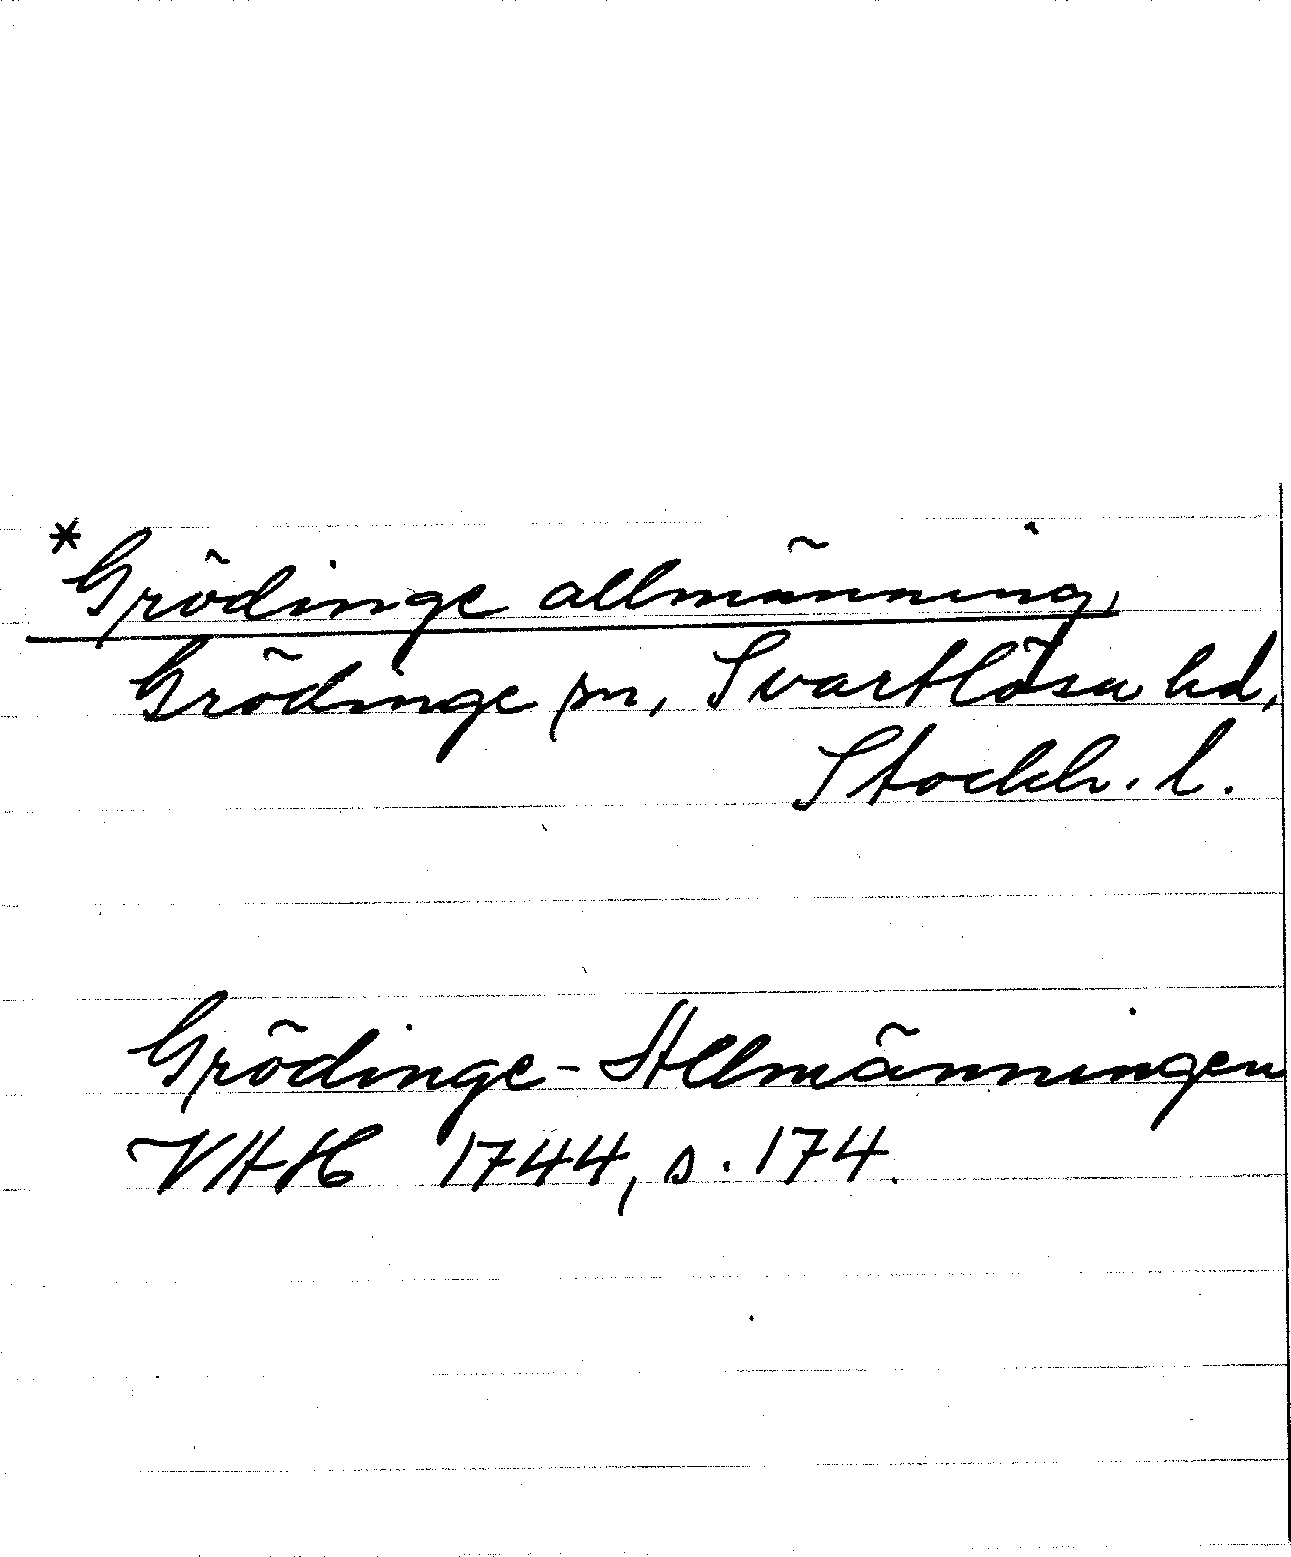 *Grödinge allmänning,
Grödinge sn, Svartlösa hd,
Stockh. l.
Grödinge-Allmänningen
VHH 1744, s. 174.